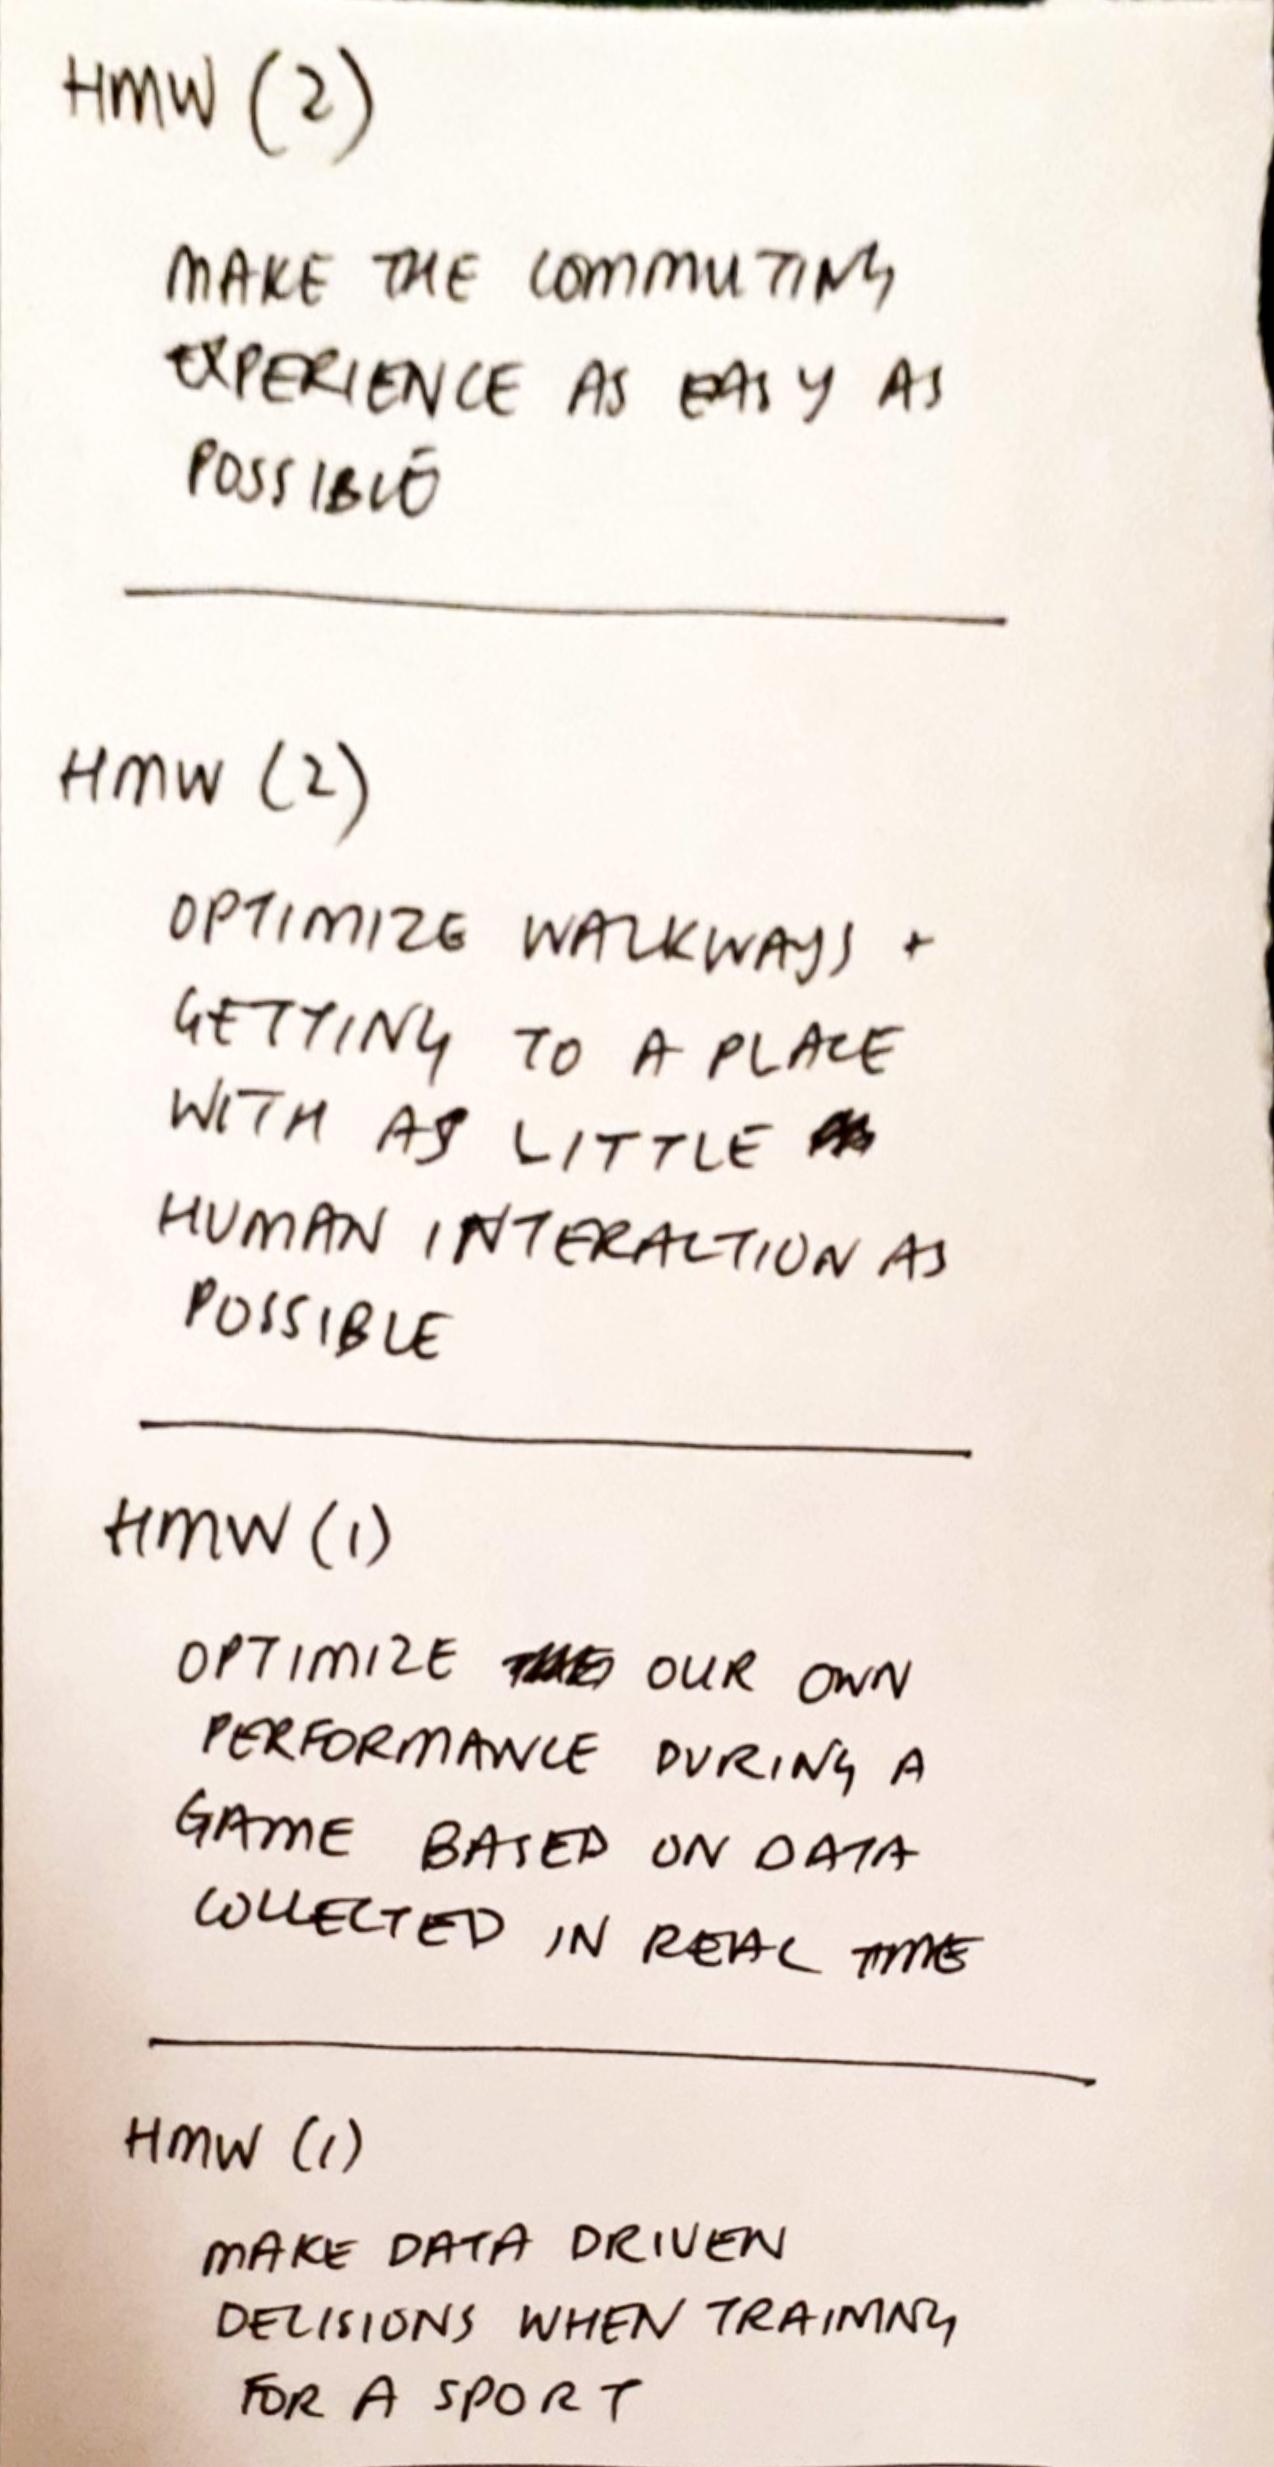 HMW (2)
MAKE THE COMMUTING
EXPERIENCE AS EASY AS
POSSIBLE
HMW (2)
OPTIMIZE WALKWAYS +
GETTING TO A PLACE
WITH AS LITTLE
HUMAN INTERACTION AS
POSSIBLE
HMW (1)
OPTIMIZE OUR OWN
PERFORMANCE DURING A
GAME BASED ON DATA
COLLECTED IN REAL TIME
HMW (1)
MAKE DATA DRIVEN
DECISIONS WHEN TRAINING
FOR A SPORT